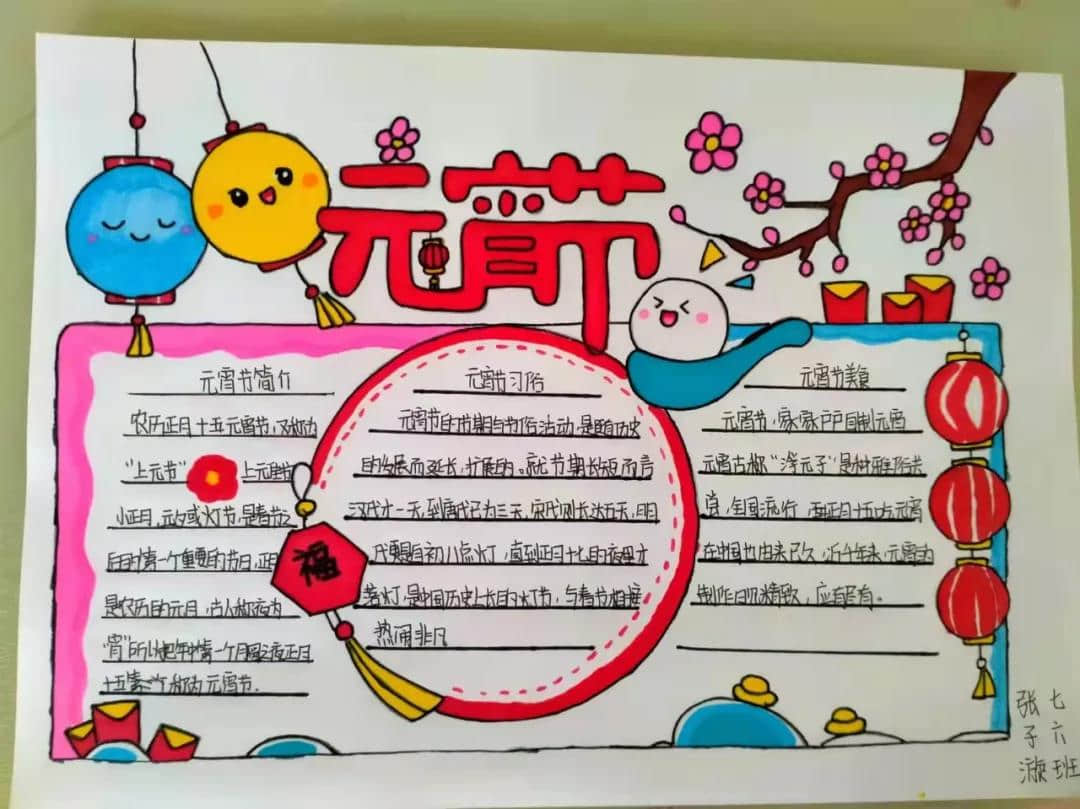 元宵节
元宵节简介
农历正月十五元宵节,又称为
"上元节" 上元佳节
小正月,元夕或灯节,是春节之
后的第一个重要的节日,正月
是农历的元月,古人称夜为
"宵"所以把年中第一个月圆之夜正月
十五称为元宵节.
福
元宵节习俗
元宵节的节期与节俗活动,是随历史
的发展而延长,扩展的。就节期长短而言
汉代才一天,到唐代已为三天,宋代则长达五天,明
代更是自初八点灯,直到正月十七的夜里才
落灯,是中国历史上长的灯节,与春节相接
热闹非凡
元宵节美食
元宵节,家家户户自制元宵
元宵古称"浮元子"是种雅俗共
赏,全国流行 正月十五吃元宵
在中国也由来已久,近千年来,元宵的
制作日见精致,应有尽有。
七六班
张子漩